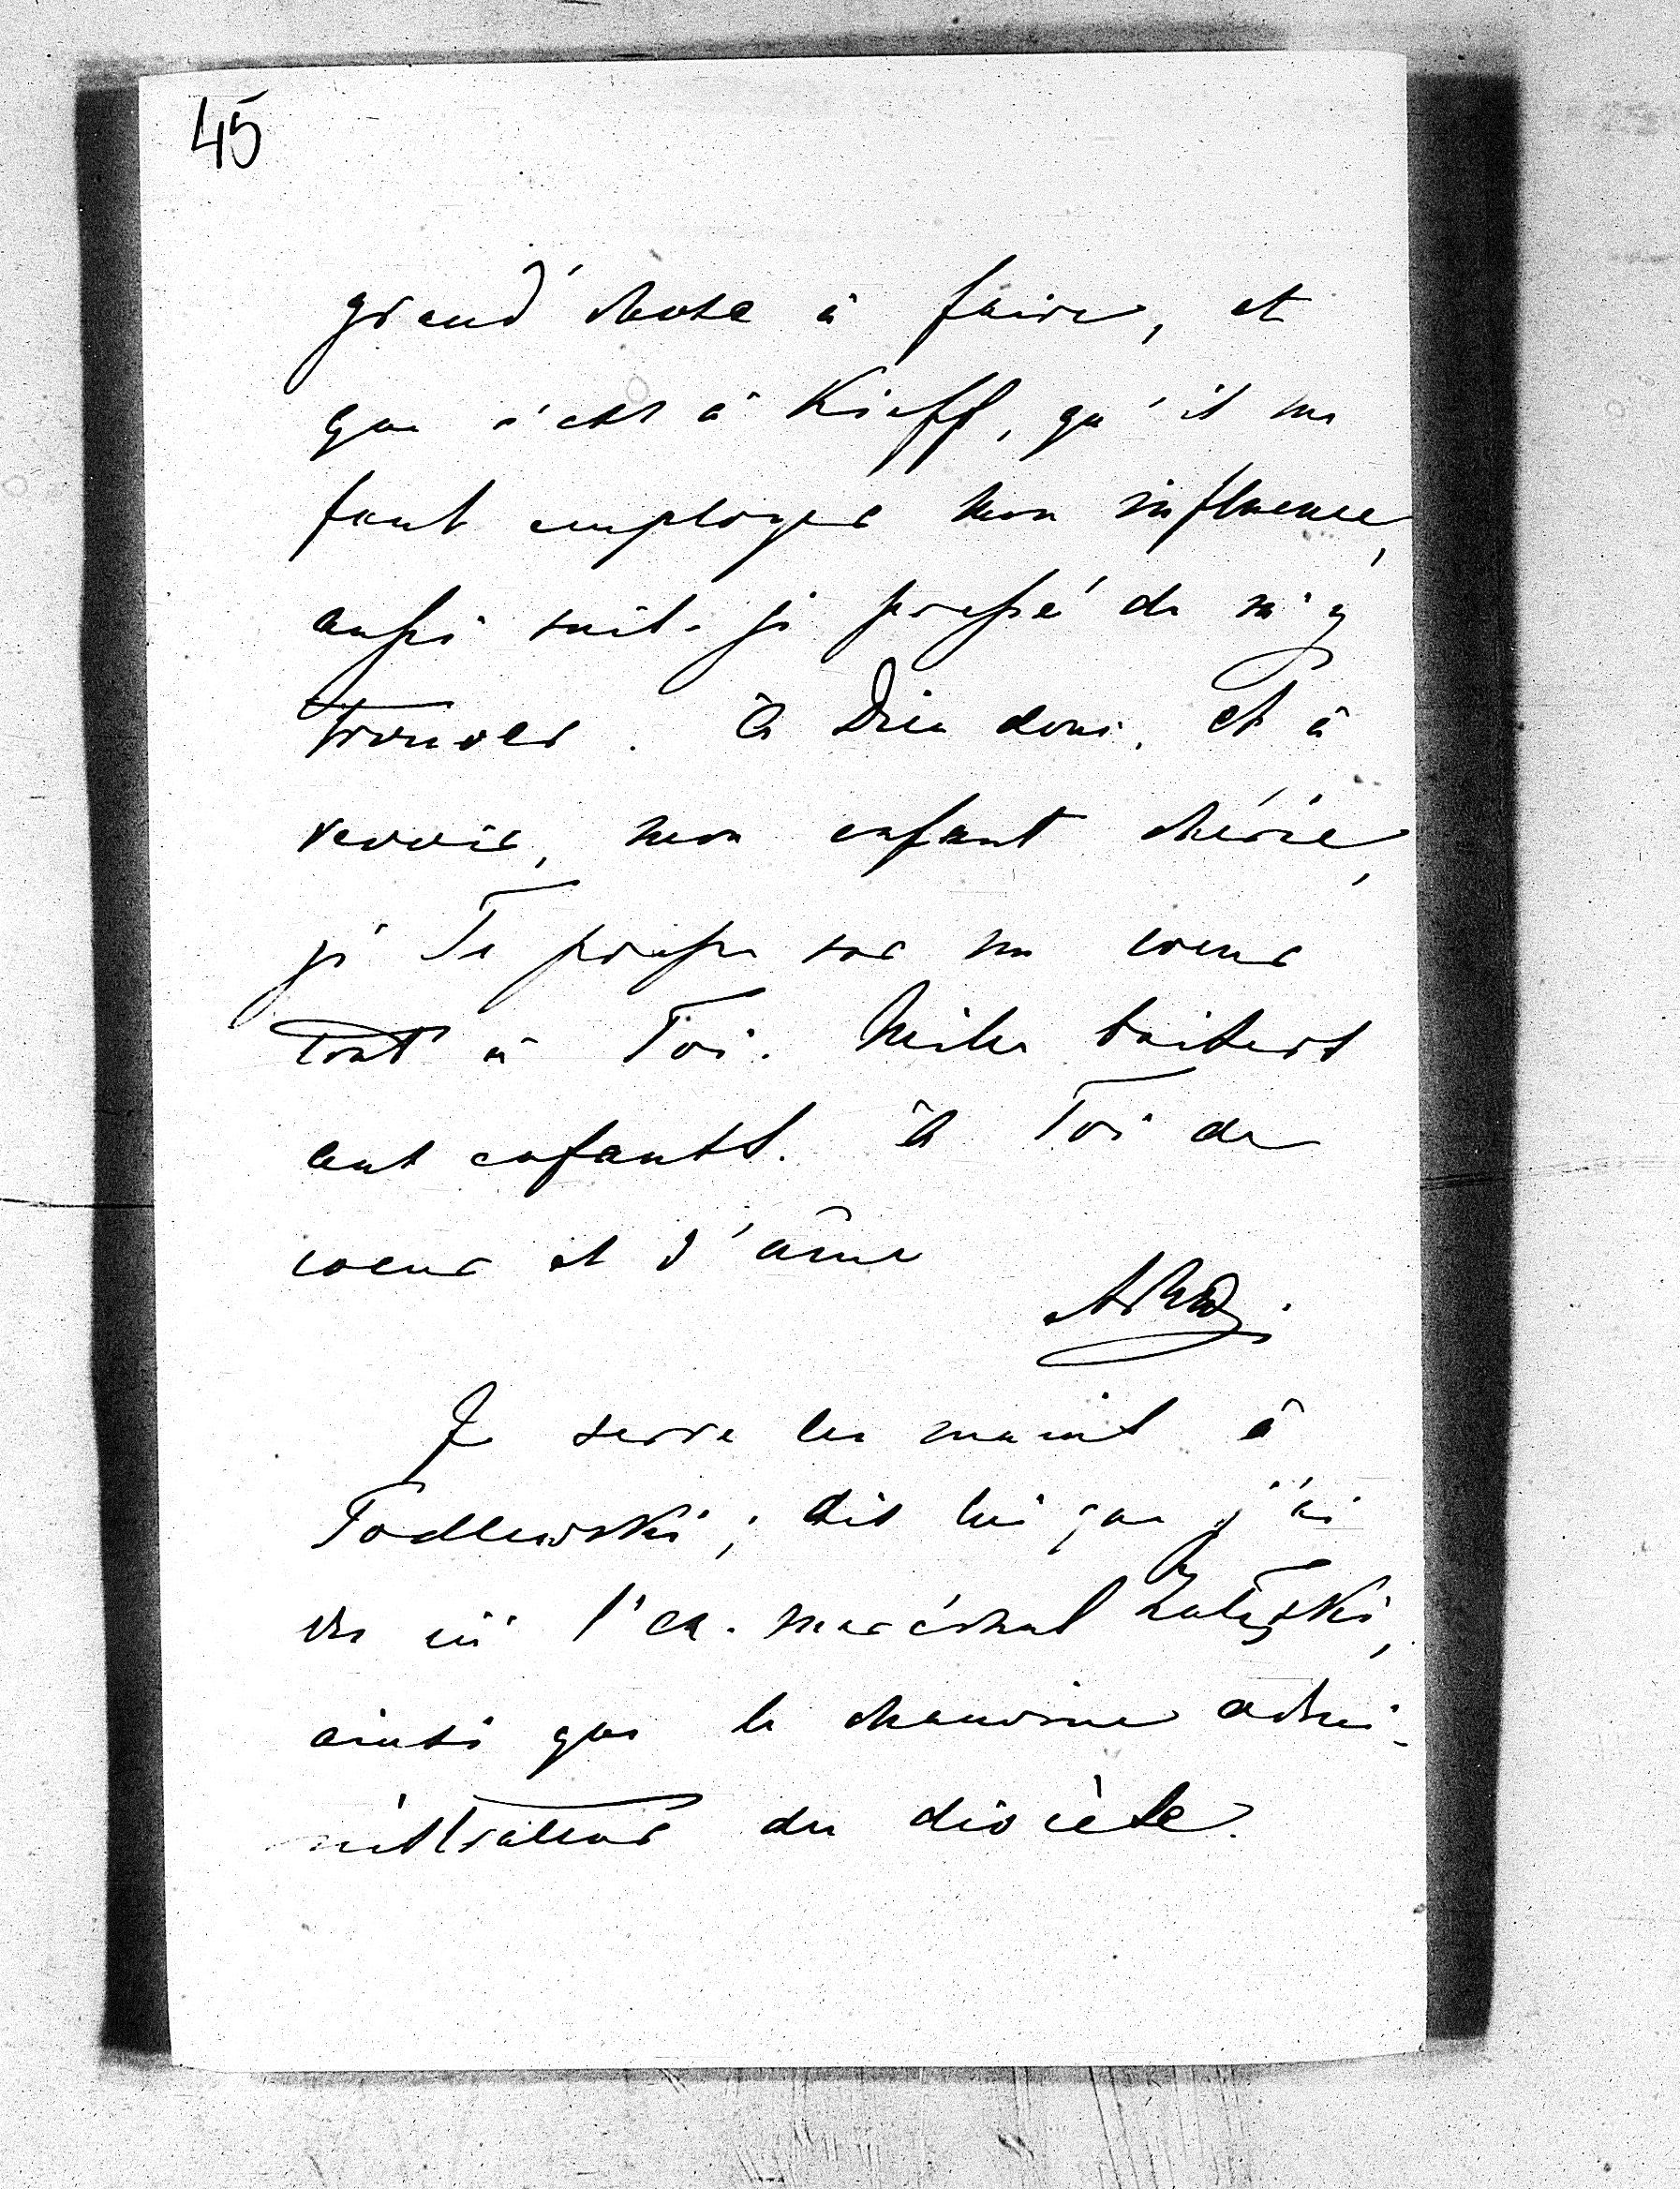 45
grand'chose à faire, et
que c'est à Kieff, qu'il me
faut employer mon influence,
aussi suis-je pressé de m'y
trouver. à Dieu donc, et à
revoir, mon enfant chérie,
je Te presse sur mon coeur
tout à Toi. Mille baisers
aux enfants. à Toi de
coeur et d'âme

Je serre les mains à
Podlewski; dis lui que j'ai
vu ici l'ex-maréchal Zaleski,
ainsi que le chanoine admi-
nistrateur du diocèse.